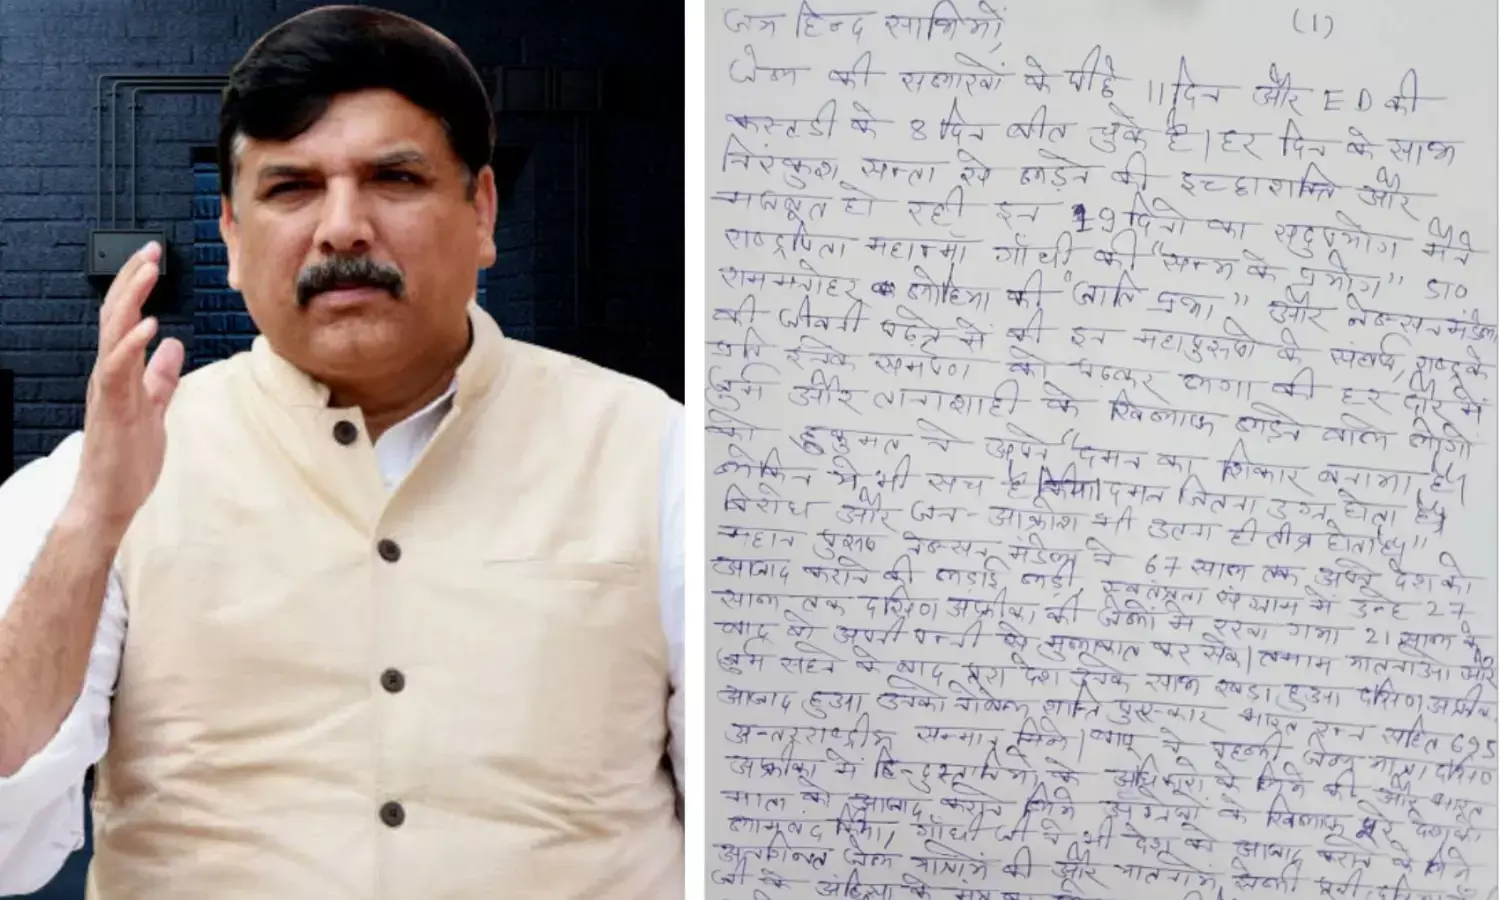 जय हिन्द साथियों, (1)
जेल की सलाखों के पीछे 11 दिन और ED की
कस्टडी के 8 दिन बीत चुके है। हर दिन के साथ
निरंकुश सत्ता से लड़ने की इच्छाशक्ति और
मजबूत हो रही इन 19 दिनो का सदुपयोग मैने
राष्ट्रपिता महात्मॉ गॉधी की "सत्य के प्रयोग" डा0
राममनोहर लोहिया की "जाति प्रथा" और नेल्सन मंडेला
की जीवनी पढ़ने में की इन महापुरूषो के संघर्ष, राष्ट्र के
प्रति इनके समर्पण को पढ़कर लगा की हर दौर में
जुर्म और तानाशाही के खिलाफ लड़ने वाले लोगो
को हुकुमत ने अपने "दमन का शिकार बनाया है।
लेकिन ये भी सच है दमन जितना उग्र होता है
विरोध और जन-आक्रोश भी उतना ही तीव्र होता है"
महान पुरूष नेल्सन मंडेला ने 67 साल तक अपने देश को
आजाद कराने की लड़ाई लड़ी, स्वतंत्रता संग्राम में उन्हे 27
साल तक दक्षिण अफ्रीका की जेलों में रखा गया 21 साल के
बाद वो अपनी पत्नी से मुलाकात कर सके। तमाम यातनाओ और
जुर्म सहने के बाद पूरा देश उनके साथ खड़ा हुआ दक्षिण
आजाद हुआ उनको नोबेल शान्ति पुरस्कार भारत रत्न सहित 695
अन्तर्राष्ट्रीय सम्मान मिले। बापू ने पहली जेल यात्रा दक्षिण
अफ्रीका में हिन्दुस्तानियो के अधिकारो के लिये की और भारत
माता को आजाद कराने लिये अंग्रेजो के खिलाफ पूरे देश को
लामबंद किया, गॉधी जी ने भी देश को आजाद कराने के लिये
अनगिनत जेल यात्रायें की और यातनायें
जी के अहिंसा के मंत्र का